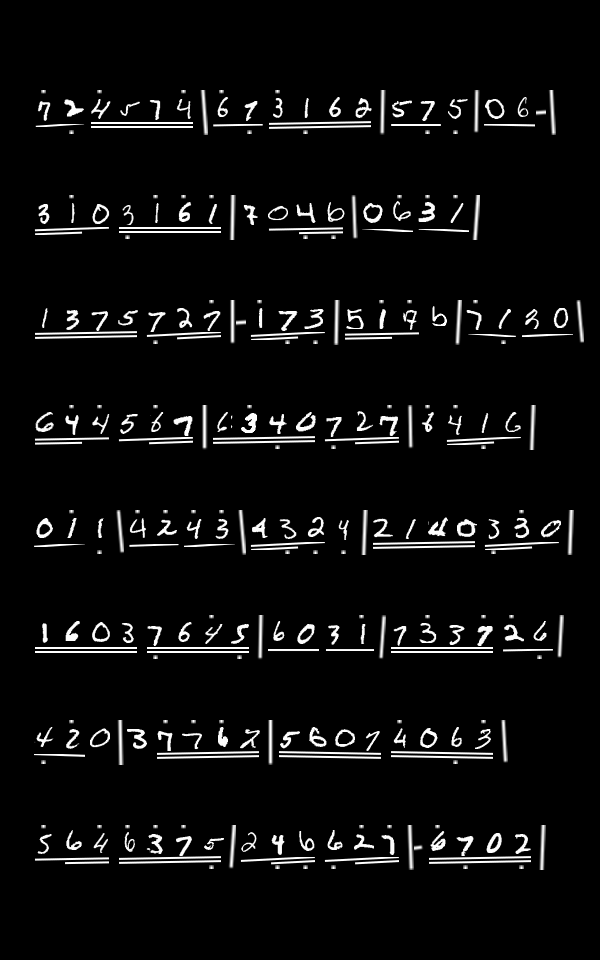 7 2 4 5 7 4 | 6 7 3 1 6 2 | 5 7 5 | 0 6 - |
3 1 0 3 1 6 1 | 7 0 4 6 | 0 6 3 1 |
1 3 7 5 7 2 7 | - 1 7 3 | 5 1 7 6 | 7 1 3 0 |
6 4 4 5 6 7 | 6 3 4 0 7 2 7 | 6 4 1 6 |
0 1 1 | 4 2 4 3 | 4 3 2 4 | 2 1 4 0 3 3 0 |
1 6 0 3 7 6 4 5 | 6 0 3 1 | 7 3 3 7 2 6 |
4 2 0 | 3 7 7 6 2 | 5 6 0 7 4 0 6 3 |
5 6 4 6 3 7 5 | 2 4 6 6 2 7 | - 6 7 0 2 |